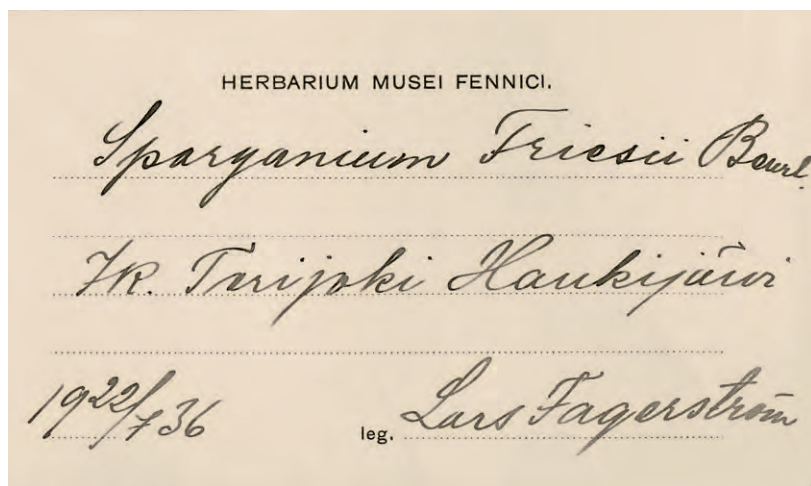 HERBARIUM MUSEI FENNICI.
Sparganium Friesii Beurl.
Ik. Terijoki Haukijärvi
19 22/7 36 leg. Lars Fagerström